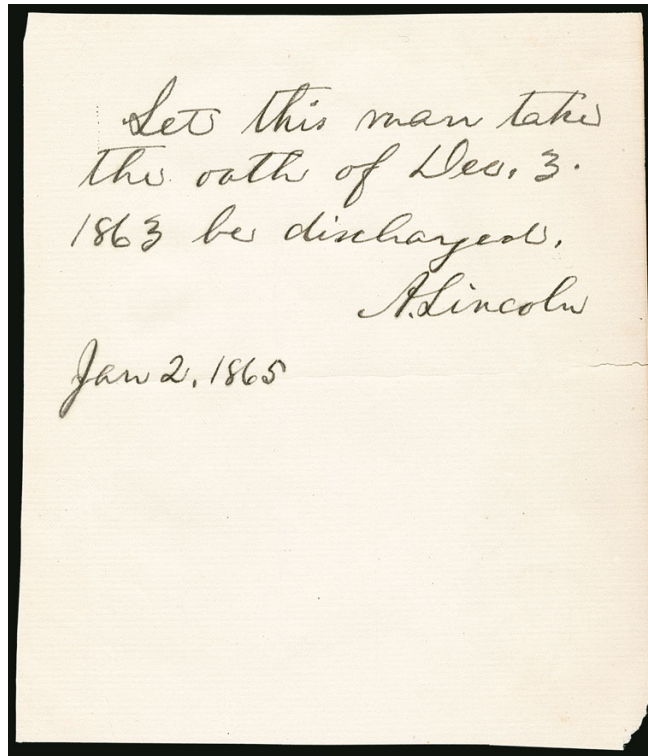 Let this man take
the oath of Dec. 3.
1863 be discharged.
A. Lincoln
Jan 2, 1865